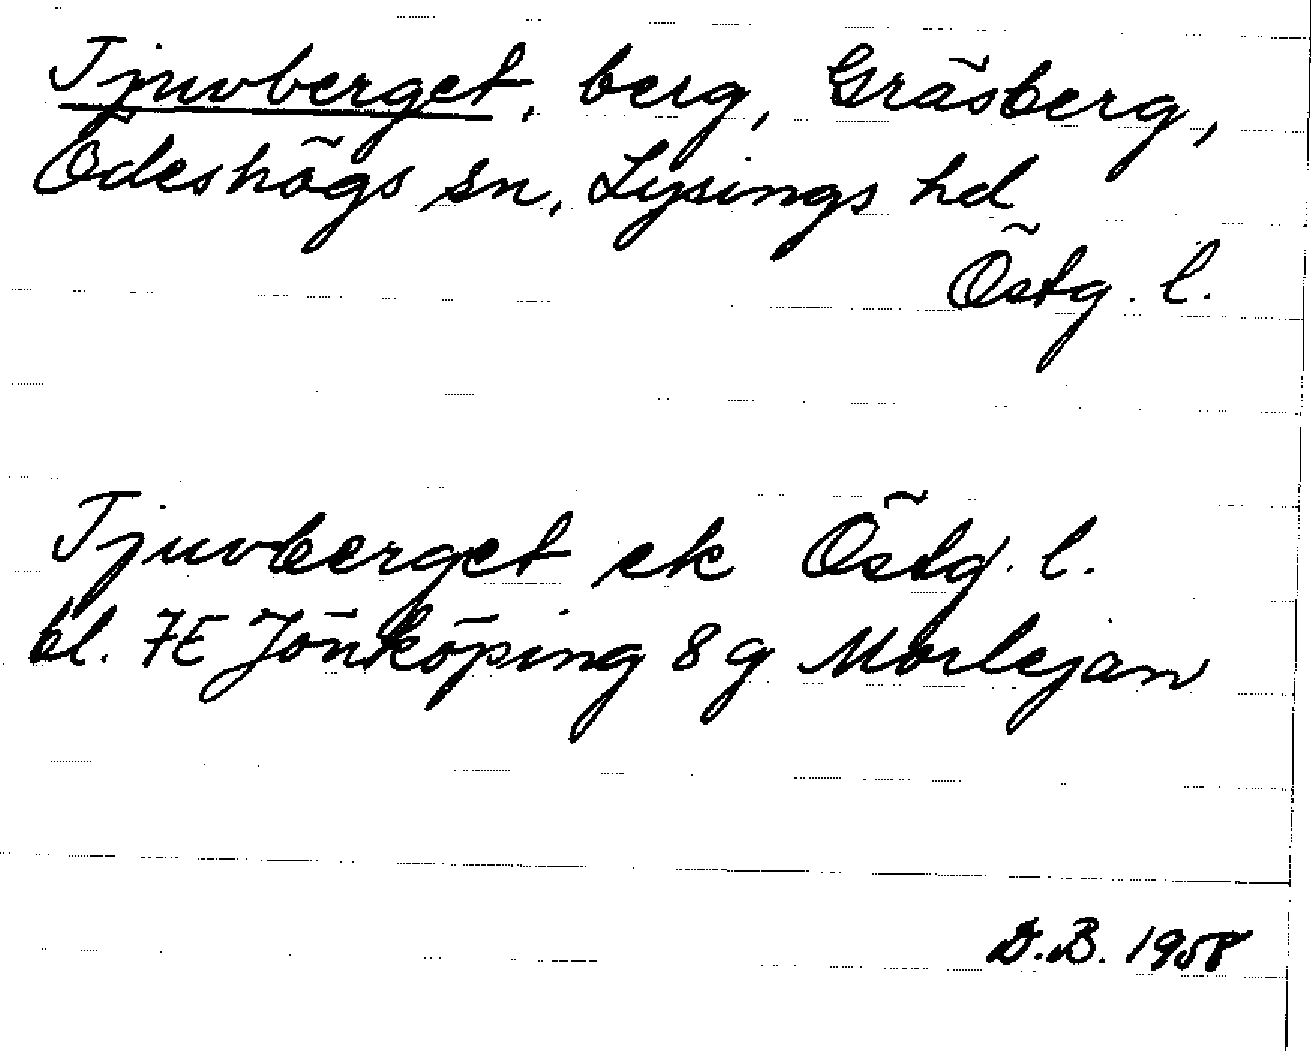 Tjuvberget, berg, Gräsberg,
Ödeshögs sn, Lysings hd
Östg. l.
Tjuvberget ek Östg. l.
bl. 7E Jönköping 8 g Morlejan
D.B. 1958